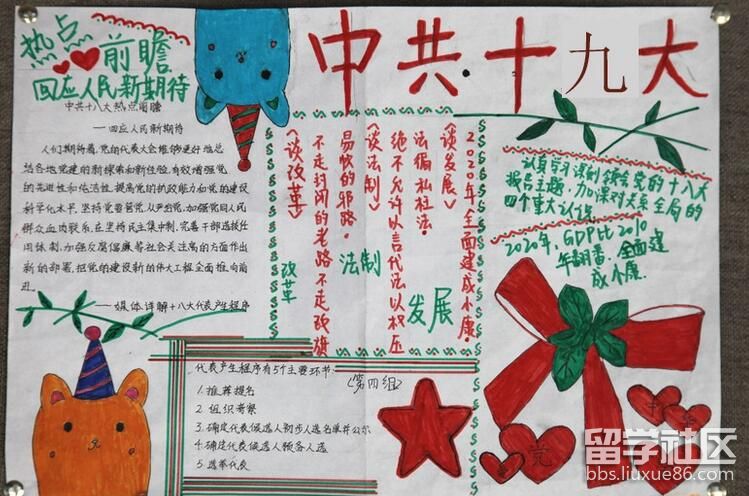 热点
前瞻
回应人民新期待
中共十八大热点前瞻
——回应人民新期待
人们期待着,党的代表大会能够更好地总
结各地党建的新探索和新经验,有效增强党
的先进性和纯洁性,提高党的执政能力和党的建设
科学化水平,坚持党要管党,从严治党,加强党同人民
群众血肉联系,在坚持民主集中制,完善干部选拔任
用体制,加强反腐倡廉等社会关注高的方面作出
新的部署,把党的建设新的伟大工程全面推向前
进。
——媒体详解十八大代表产生程序
中共十九大
《谈发展》
2020年全面建成小康。
《谈法制》
绝不允许以言代法以权压
法徇私枉法。
《谈改革》
不走封闭的老路不走改旗
易帜的邪路。
改革
法制
发展
认真学习深刻领会党的十八大
报告主题,加深对关系全局的
四个重大认识
2020年,GDP比2010
年翻番,全面建
成小康.
代表产生程序有5个主要环节:
1.推荐提名
2.组织考察
3.确定代表候选人初步人选名单并公示
4.确定代表候选人预备人选
5.选举代表
(第四组)
党
留学社区
bbs.liuxue86.com